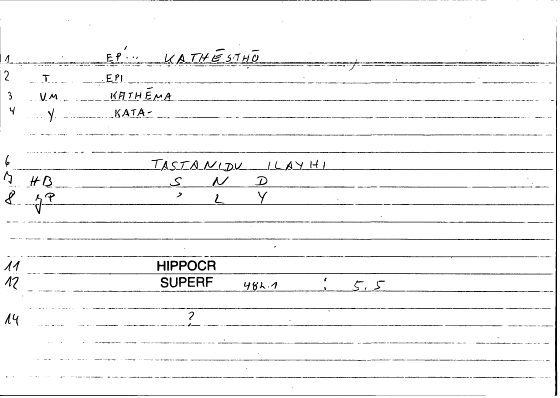 1 EP'... KATHĒSTHŌ
2 T EPI
3 VM KATHĒMA
4 Y KATA-
6 TASTANIDU ILAYHI
7 HB S N D
8 gP ' L Y
11 HIPPOCR
12 SUPERF 482.1 : 5.5
14 ?